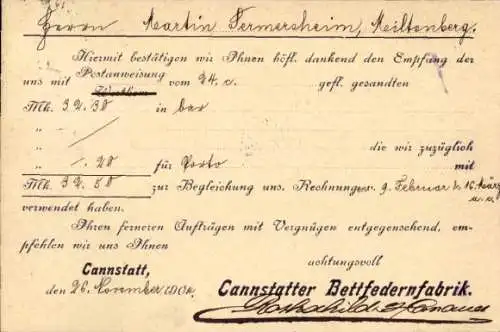 Herrn Martin Permersheim, Miltenberg.
Hiermit bestätigen wir Ihnen höfl. dankend den Empfang der
uns mit Postanweisung vom 24. c. gefl. gesandten
Werthen
Mk. 32.30 in bar
" /
" -.20 für Porto die wir zuzüglich mit
Mk. 32.50 zur Begleichung uns. Rechnungen v. 9. Februar & 16. März
a. c.
verwendet haben.
Ihren ferneren Aufträgen mit Vergnügen entgegensehend, em-
pfehlen wir uns Ihnen
achtungsvoll
Cannstatt,
den 26. November 1900. Cannstatter Bettfedernfabrik.
Rothschild & Hanauer